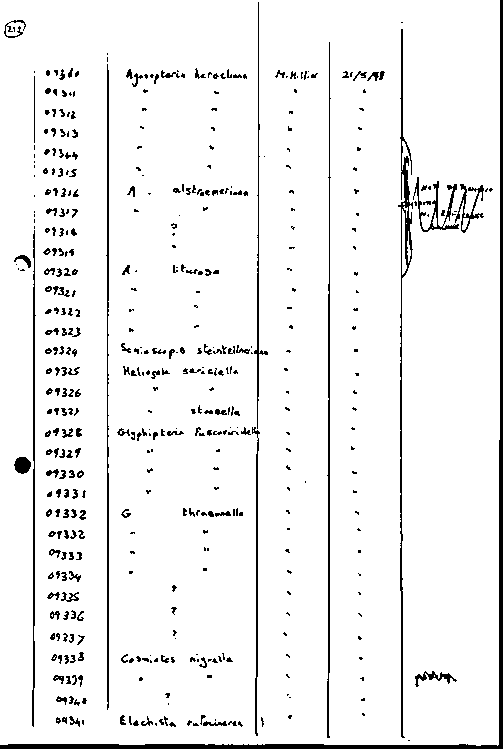 212
09310 Agonopterix heracliana M. Hillier 21/5/98
09311 " " " "
09312 " " " "
09313 " " " "
09314 " " " "
09315 " " " "
09316 A. alstroemeriana " "
09317 " " " "
09318 ? " "
09319 " " "
09320 A. liturosa " "
09321 " " " "
09322 " " " "
09323 " " " "
09324 steinkellneriana " "
09325 Heliozela sericiella " "
09326 " " " "
09327 " stanella " "
09328 Glyphipterix fuscoviridella " "
09329 " " " "
09330 " " " "
09331 " " " "
09332 G thrasonella " "
09332 " " " "
09333 " " " "
09334 " " " "
09335 ? " "
09336 ? " "
09337 ? " "
09338 Cosmiotes nigrella " "
09339 " " " "
09340 ? " "
09341 Elachista rufocinerea " "